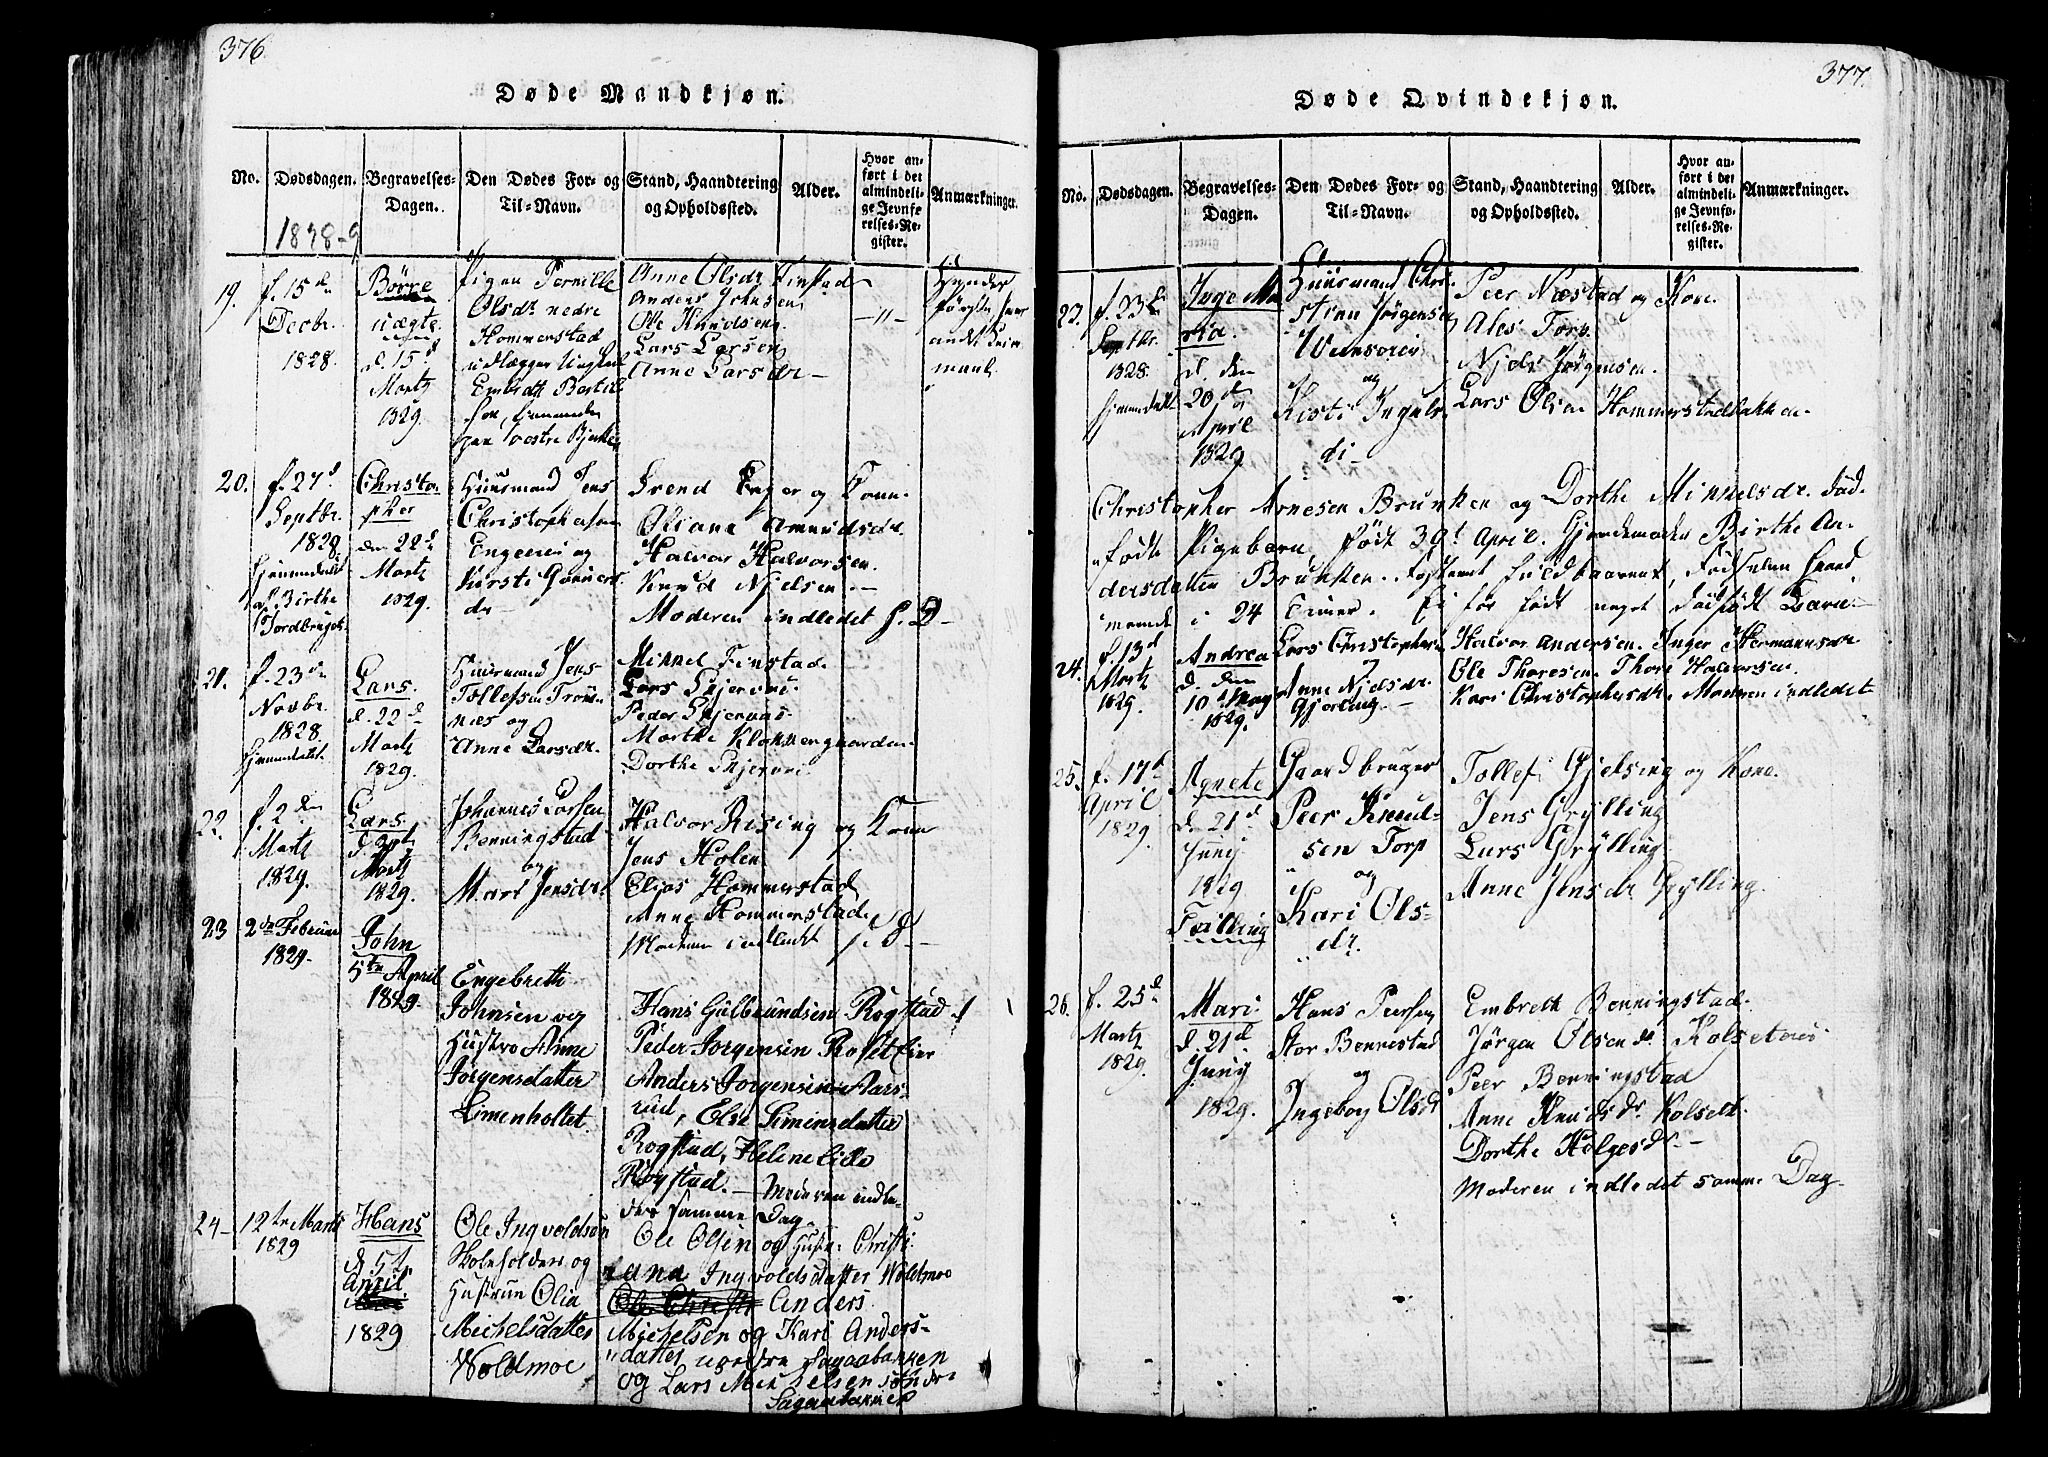 376
Døde Mandkjøn.
No.
Dødsdagen.
Begravelses-
Dagen.
Den Dødes For- og
Til-Navn.
Stand, Haandtering
og Opholdssted.
Alder.
Hvor an-
ført i det
almindeli-
ge Jevnfø-
relses-Re-
gister.
Anmærkninger.
1828-9
19.
f. 15de
Decbr.
1828.
Børre
uægte
d. 15d
Martz
1829.
Pigen Pernille
Olsdr nedre
Hommerstad
Anne Olsdr Finstad
Anders Johnsen
Ole Knudsen
Lars Larsen
Anne Larsdr
-"-
20.
f. 27d
Septbr.
1828.
Hjemmedøbt
af Birthe
Christo
pher
den 22d
Martz
1829.
Huusmand Jens
Christophersen
Engeerei og
Kirsti Gunners
dr
Svend Enger og Kone.
Oliane Amundsdr.
Halvor Halvorsen.
Knud Nielsen.
Moderen indledet s. D
21.
f. 23de
Novbr.
1828.
Hjemmedøbt.
Lars.
d. 22d
Martz
1829.
Huusmand Jens
Tollefsen
næs og
Anne Larsdr.
Mikkel Finstad.
Lars Skjervei.
Peder Skjervei.
Marthe Klokkergaarden
Dorthe Skjervei
22.
f. 2den
Martz
1829.
Lars
Martz
1829.
Johannes Larsen
Benningstad
og
Mari Jensdr.
Halvor Rising og Kone
Jens Holen
Elias Hommerstad
Anne Hommerstad.
Moderen indledet s. D.
23
2den Februar
1829.
John
5te April
1829.
Engebreth
Johnsen og
Hustro Anne
Jørgensdatter
Limenholtet.
Hans Gulbrandsen Rogstad
Peder Jorgensen Roset Eier
Anders Jorgensen Aars-
rud, Else Simensdatter
Rogstad, Helene Lide
Rogstad. Moderen indle-
det samme Dag.
24
12te Marts
1829
Hans
d 5te
April
1829
Ole Ingvoldsen
Skoleholder og
Hustrue Olia
Michelsdatter
Woldmoe
Ole Olsen og Hustr. Christi
ana Ingvoldsdatter Woldmoe
Anders
Michelsen og Kari Anders-
datter nordre Sagaabakken
og Lars Mikkelsen søndre
Sagaabakken
377.
Døde Qvindekjøn.
No.
Dødsdagen.
Begravelses-
Dagen.
Den Dødes For- og
Til-Navn.
Stand, Haandtering
og Opholdssted.
Alder.
Hvor an-
ført i det
almindeli-
ge Jevnfø-
relses-Re-
gister.
Anmærkninger.
23.
f. 23d
Septbr.
1828.
Hjemmedøbt
Inge Ma
ria.
d. den
20de
April
1829
Huusmand Chri
stian Jørgensen
og
Kisti Ingels
dr
Peer Næstad og Kone
Ales Torp.
Niels Jørgensen.
Lars Olsen Hommerstadbakken
Christopher Arnesen Brunken og Dorthe Mikkelsdr. död-
födte Pigebarn, födt 30t April. Gjordemoder Birthe An-
dersdatter Brunken. Fosteret fuldbaaret, Födselen varede
i 24 Timer. Ei för födt noget dödfödt Barn.
24.
f. 13d
Martz
1829.
Andrea
d. den
10d May
1829.
Lars Christophersen
Anne Nielsdr.
Gjørling.
Halvor Andersen. Inger Hermannsdr
Ole Thoresen. Thore Halvorsen.
Kari Christophersdr. Moderen indledet
25.
f. 17d
April
1829.
Agnete
d. 21d
Juny
1829
Tvilling
Gaardbruger
Peer Knud-
sen Torp
og
Kari Ols-
dr.
Tollef Gjelsing og Kone.
Jens Grylling
Lars Grylling
Anne Jensdr Grylling.
26.
f. 25d
Martz
1829.
Mari
d. 21d
Juny
1829.
Hans Peersen
Stor Bennestad
og
Ingeborg Olsdr
Embrett Benningstad.
Jørgen Olsen
Peer Benningstad
Anne Knudsdr. Kolset.
Dorthe Holgersdr.
Moderen indledet samme Dag